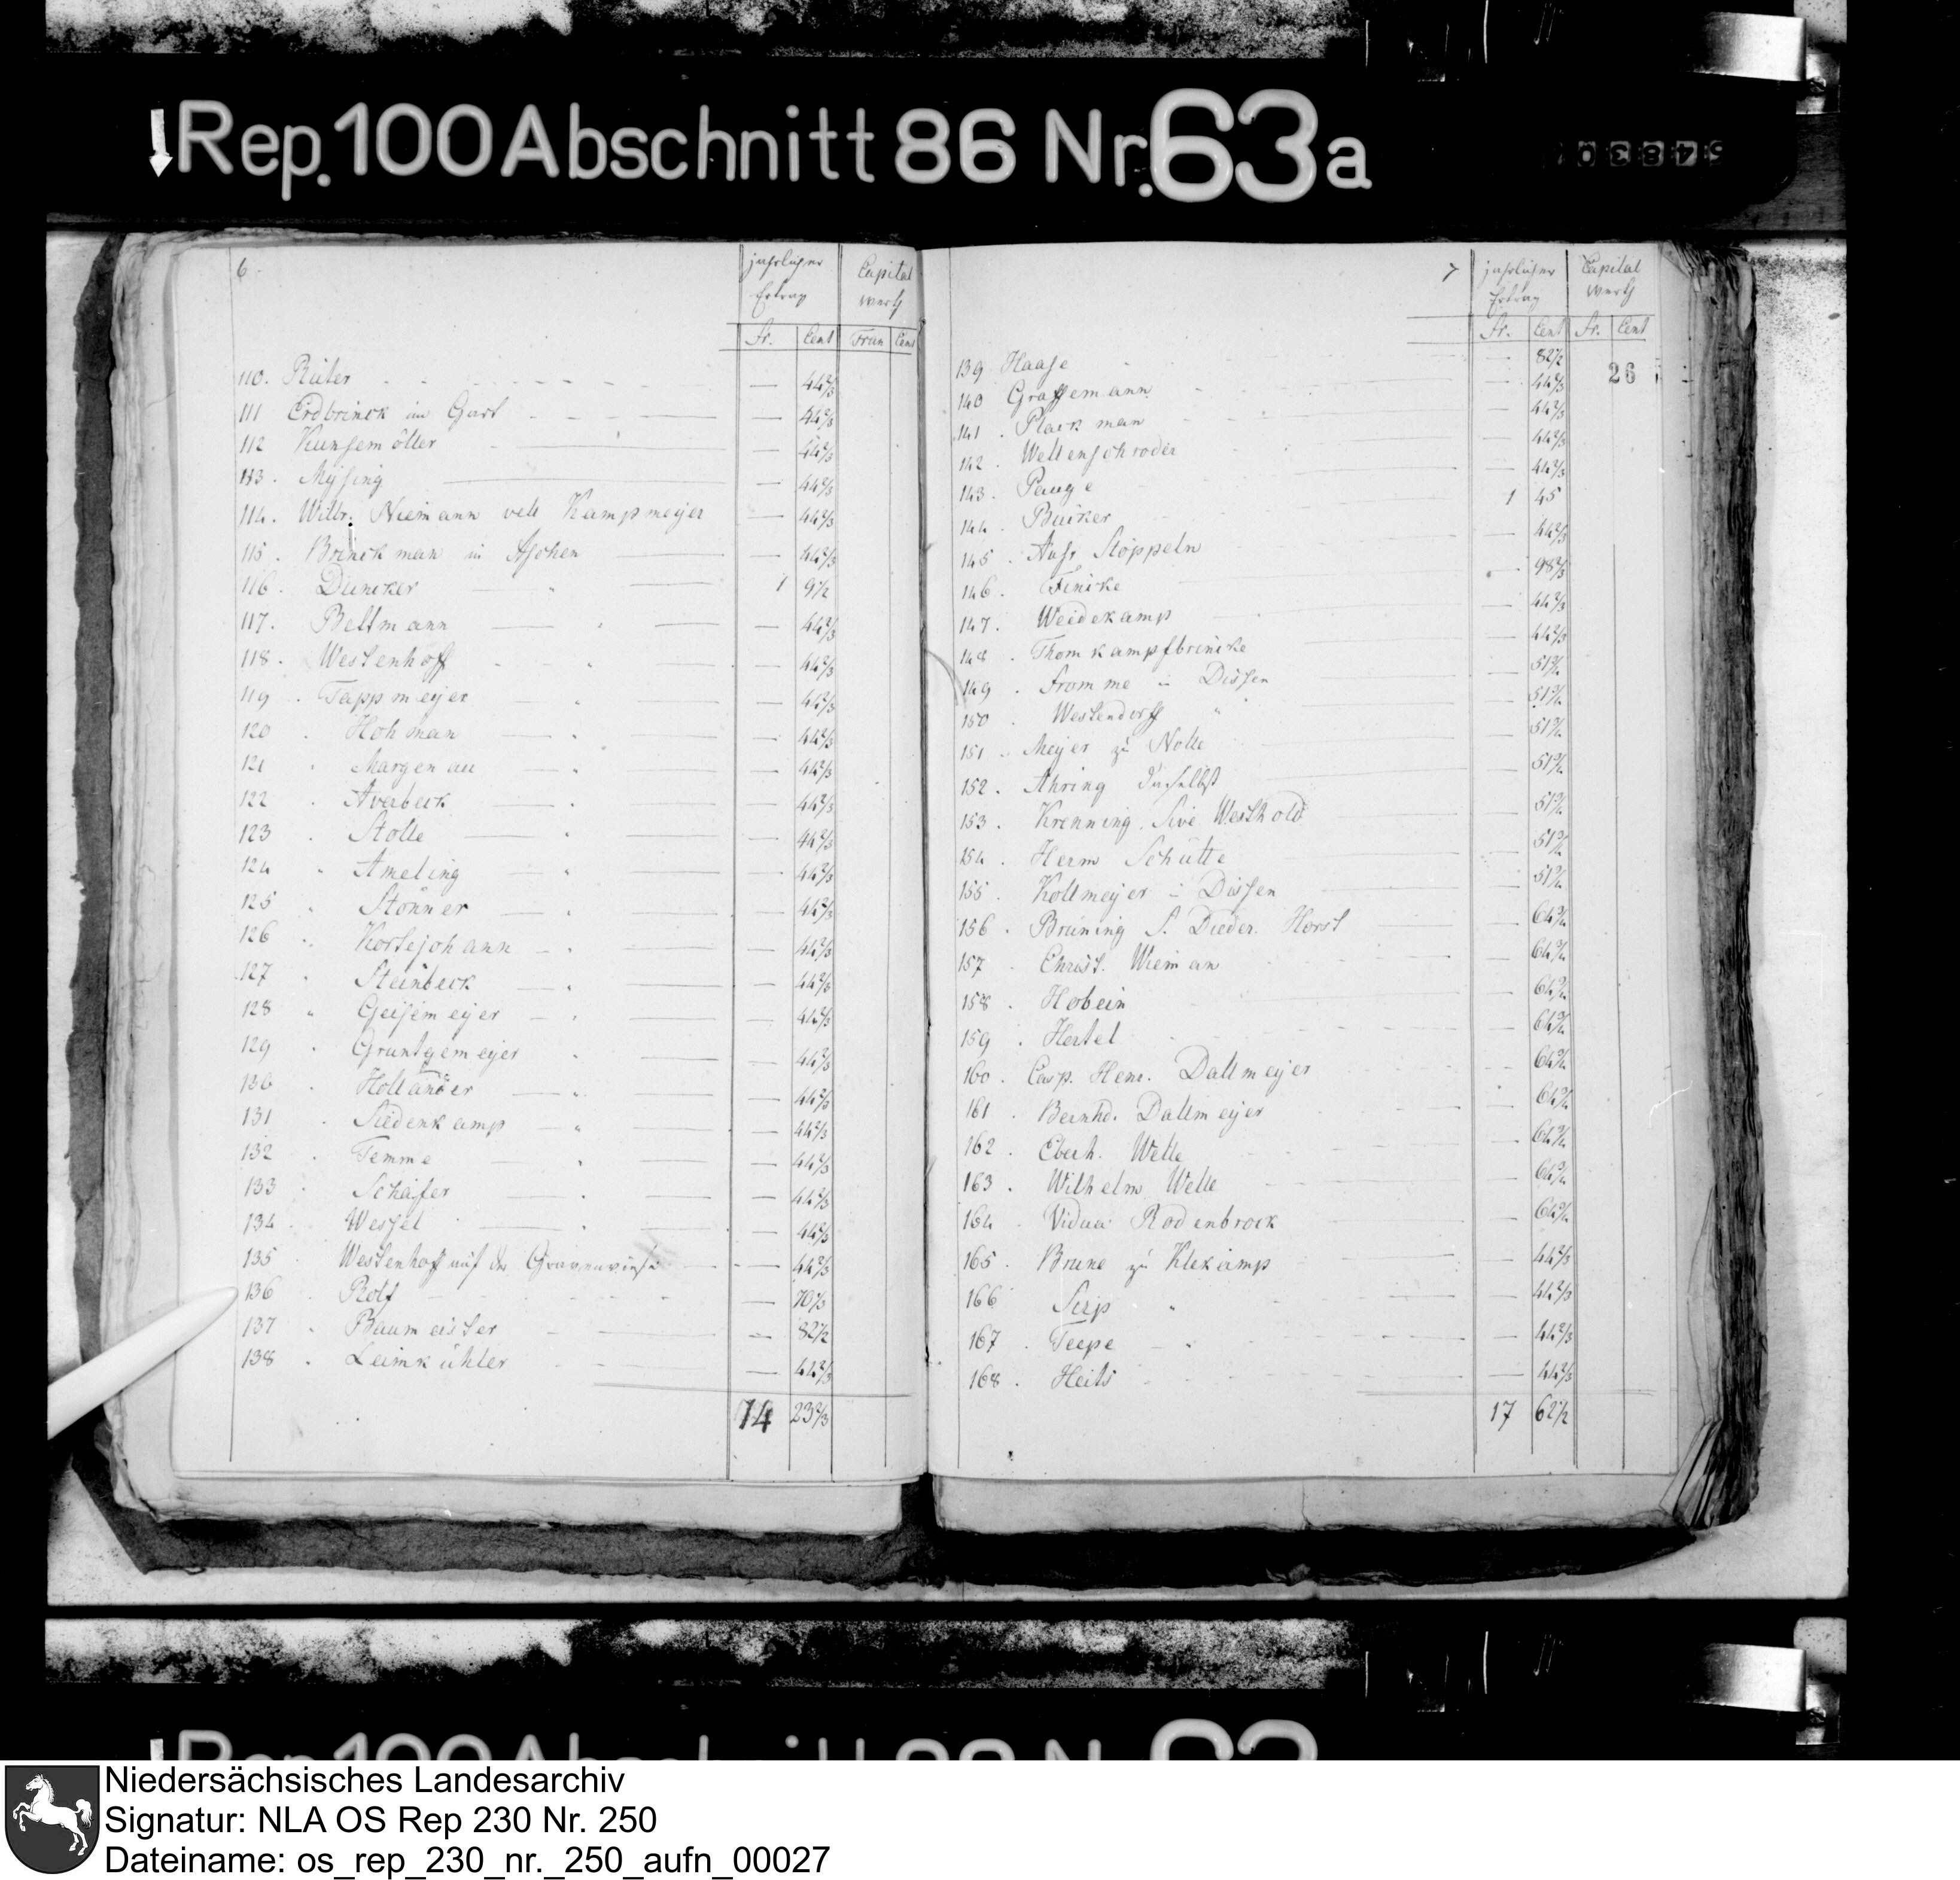 Rep. 100 Abschnitt 86 Nr. 63a
6
jährlicher Ertrag Capital werth
Fr. Cent Fran Cent
110. Rüter — 44 2/3
111 Erdbrinck im Gart — 44 2/3
112 Kunsemöller — 44 2/3
113. Mysing — 44 2/3
114. Willr. Niemann vell Kampmeyer — 44 2/3
115. Brinckman in Aschen — 44 2/3
116. Duncker " 1 9 1/2
117. Beltmann " — 44 2/3
118. Westenhoff " — 44 2/3
119. Tappmeyer " — 44 2/3
120. Hohman " — 44 2/3
121. Margenau " — 44 2/3
122. Averbeck " — 44 2/3
123. Stolle " — 44 2/3
124. Ameling " — 44 2/3
125. Stönner " — 44 2/3
126. Kortejohann " — 44 2/3
127. Steinbeck " — 44 2/3
128 " Geisemeyer " — 44 2/3
129. Gruntgemeyer " — 44 2/3
130. Holländer " — 44 2/3
131. Siedenkamp " — 44 2/3
132. Temme " — 44 2/3
133. Schäfer " — 44 2/3
134. Wessel " — 44 2/3
135 Westenhoff auf der — 44 2/3
136. Rolf — 70 1/3
137. Baumeister — 82 1/2
138. Leimkühler — 44 2/3
14 23 2/3
7
jährlicher Ertrag Capital werth
Fr. Cent Fr. Cent
26
139 Haase — 82 1/2
140 Grassemann — 44 2/3
141. Plackman — 44 2/3
142. Wellenschroder — 44 2/3
143. Pauge — 44 2/3
144. Bücker 1 45
145. Stöppeln — 44 2/3
146. Finicke — 98 2/3
147. Weidekamp — 44 2/3
148. Thomkampfbrincke — 44 2/3
149. Fromme in Dissen — 51 3/4
150. Westendorff " — 51 3/4
151. Meyer zu Nolle — 51 3/4
152. Ahring daselbst — 51 3/4
153. Krenning. Sive Westhold — 51 3/4
154. Herm Schütte — 51 3/4
155. Kollmeyer in Dissen — 51 3/4
156. Brüning S. Dieder. Horst — 64 3/4
157. Christ. Wieman — 64 3/4
158. Hobein — 64 3/4
159. Hertel — 64 3/4
160. Casp. Henr. Dallmeyer — 64 3/4
161. Bernhd. Dallmeyer — 64 3/4
162. Eberh. Welle — 64 3/4
163. Wilhelm Welle — 64 3/4
164. Vidua Rodenbrock — 64 3/4
165. Brune zu Klekamp — 44 2/3
166 Serp " — 44 2/3
167. Teepe " — 44 2/3
168. Heits — 44 2/3
17 62 1/2
Niedersächsisches Landesarchiv
Signatur: NLA OS Rep 230 Nr. 250
Dateiname: os_rep_230_nr._250_aufn_00027